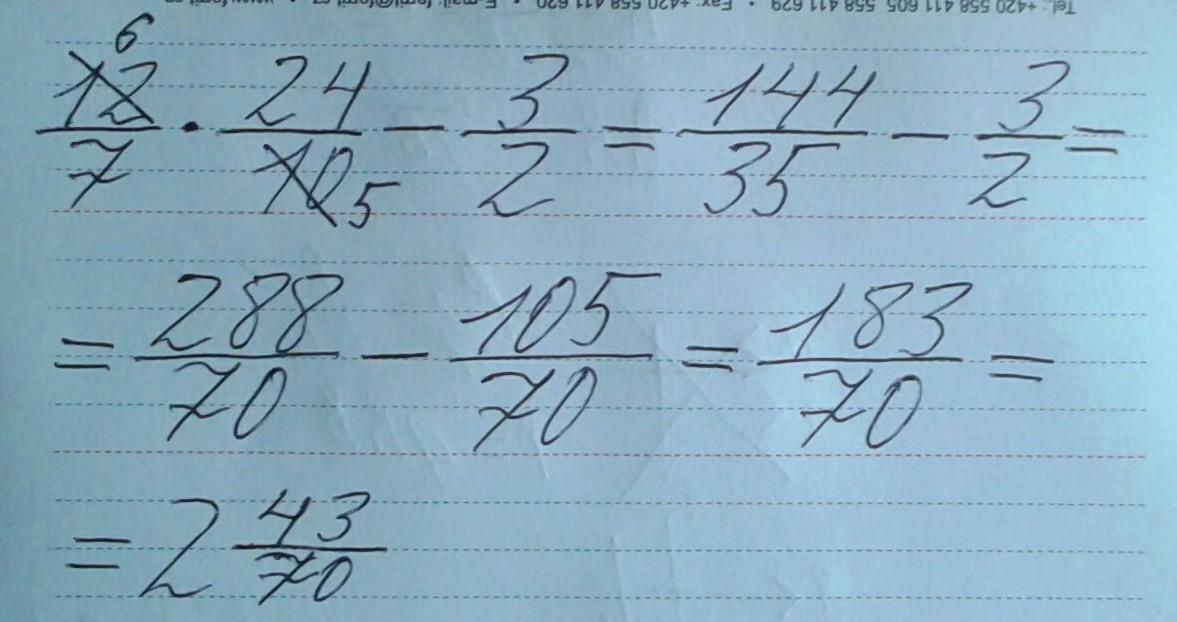 Tel.: +420 558 411 605, 558 411 629 • Fax: +420 558 411 620 • E-mail:
6
12/7 · 24/10 5 − 3/2 = 144/35 − 3/2 =
= 288/70 − 105/70 = 183/70 =
= 2 43/70